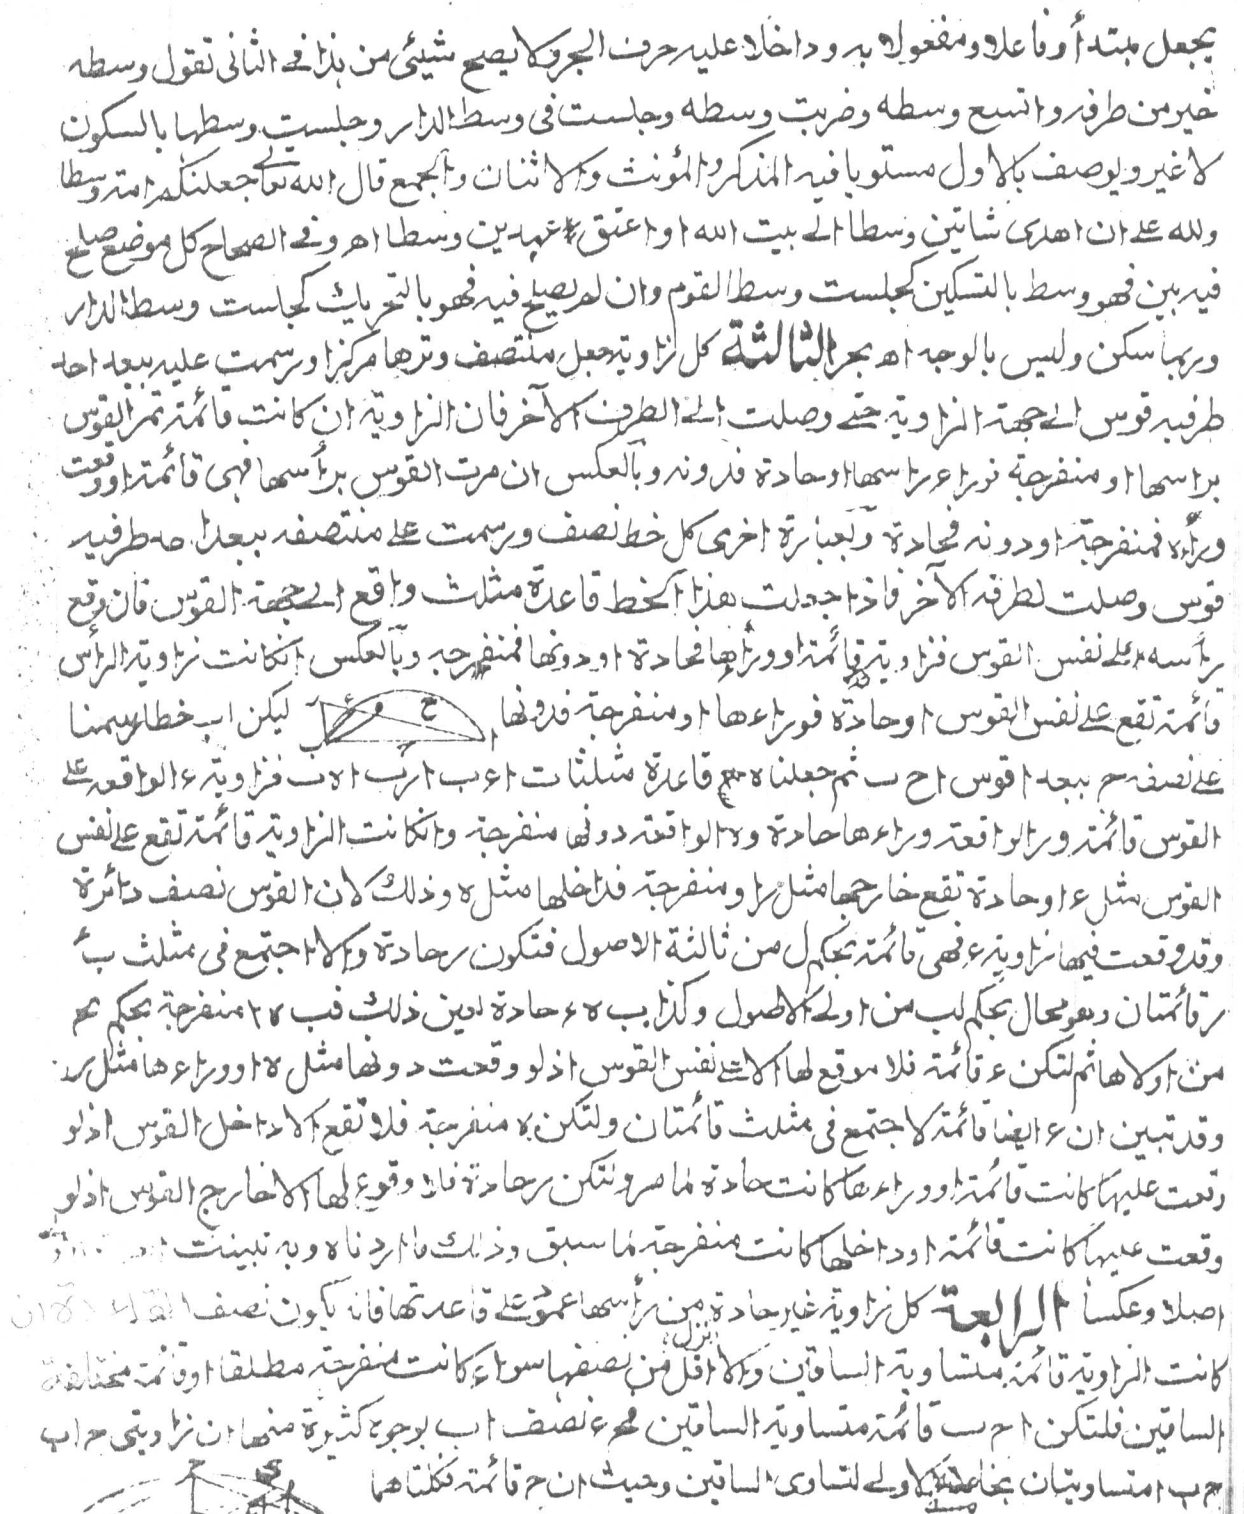 يجعل مبتدأ وفاعلا ومفعولا به وداخلا عليه حرف الجر ولا يصح شيئ من هذا في الثاني تقول وسطه
خير من طرفه واتسع وسطه وضربت وسطه وجلست في وسط الدار وجلست وسطها بالسكون
لا غير ويوصف بالاول مستويا فيه المذكر والمؤنث والاثنان والجمع قال الله تعالى جعلنكم امة وسطا
ولله على ان اهدى شاتين وسطا الى بيت الله او اعتق عبدين وسطا اه وفي الصحاح كل موضع صلح
فيه بين فهو وسط بالتسكين كجلست وسط القوم وان لم يصلح فيه فهو بالتحريك كجلست وسط الدار
وربما سكن وليس بالوجه اه بحر الثالثة كل زاوية جعل منتصف وترها مركزا ورسمت عليه ببعد احد
طرفيه قوس الى جهة الزاوية حتى وصلت الى الطرف الآخر فان الزاوية ان كانت قائمة تمر القوس
براسها او منفرجة فوراء راسها او حادة فدونه وبالعكس ان مرت القوس برأسها فهى قائمة او وقعت
وراءه فمنفرجة او دونه فحادة وبعبارة اخرى كل خط نصف ورسمت على منتصفه ببعد احد طرفيه
قوس وصلت لطرفه الآخر فاذا جعلت هذا الخط قاعدة مثلث واقع الى جهة القوس فان وقع
رأسه على نفس القوس فزاوية قائمة او وراءها فحادة او دونها فمنفرجه وبالعكس انكانت زاوية الرأس
قائمة تقع على نفس القوس او حادة فوراءها او منفرجة فدونها ليكن اب خطا رسمنا
على نصفه م ببعد ا قوس ا ح ب ثم جعلناه قاعدة مثلثات ا ء ب ا ر ب ا ه ب فزاوية ء الواقعة على
القوس قائمة ور الواقعة وراءها حادة وه الواقعة دونها منفرجة وانكانت الزاوية قائمة تقع على نفس
القوس مثل ء او حادة تقع خارجها مثل ر او منفرجة فداخلها مثل ه وذلك لان القوس نصف دائرة
وقد وقعت فيها زاوية ء فهى قائمة بحكم ل من ثالثة الاصول فتكون ر حادة والا اجتمع في مثلث ب ء
ر قائمتان وهو محال بحكم لب من اولى الاصول وكذا ب ه ء حادة لعين ذلك فب ه ا منفرجة بحكم
من اولاها ثم لتكن ء قائمة فلا موقع لها الا على نفس القوس اذ لو وقعت دونها مثل ه او وراءها مثل ر
وقد تبين ان ء ايضا قائمة لاجتمع في مثلث قائمتان ولتكن ه منفرجة فلا تقع الا داخل القوس اذ لو
وقعت عليها كانت قائمة او وراءها كانت حادة لما مر ولتكن ر حادة فلا وقوع لها الا خارج القوس اذ لو
وقعت عليها كانت قائمة او داخلها كانت منفرجة لما سبق وذلك ما اردناه وبه تبينت
اصلا وعكسا الرابعة كل زاوية غير حادة نزل من رأسها عمود على قاعدتها فانه يكون نصف القاعدة ان
كانت الزاوية قائمة متساوية الساقين والا اقل من نصفها سواء كانت منفرجة مطلقا او قائمة مختلفة
الساقين فلتكن ا ح ب قائمة متساوية الساقين فح ء نصف ا ب بوجوه كثيرة منها ان زاويتى ح ا ب
ح ب ا متساويتان بخامسة الاولى لتساوى الساقين وحيث ان ح قائمة فكلتاهما